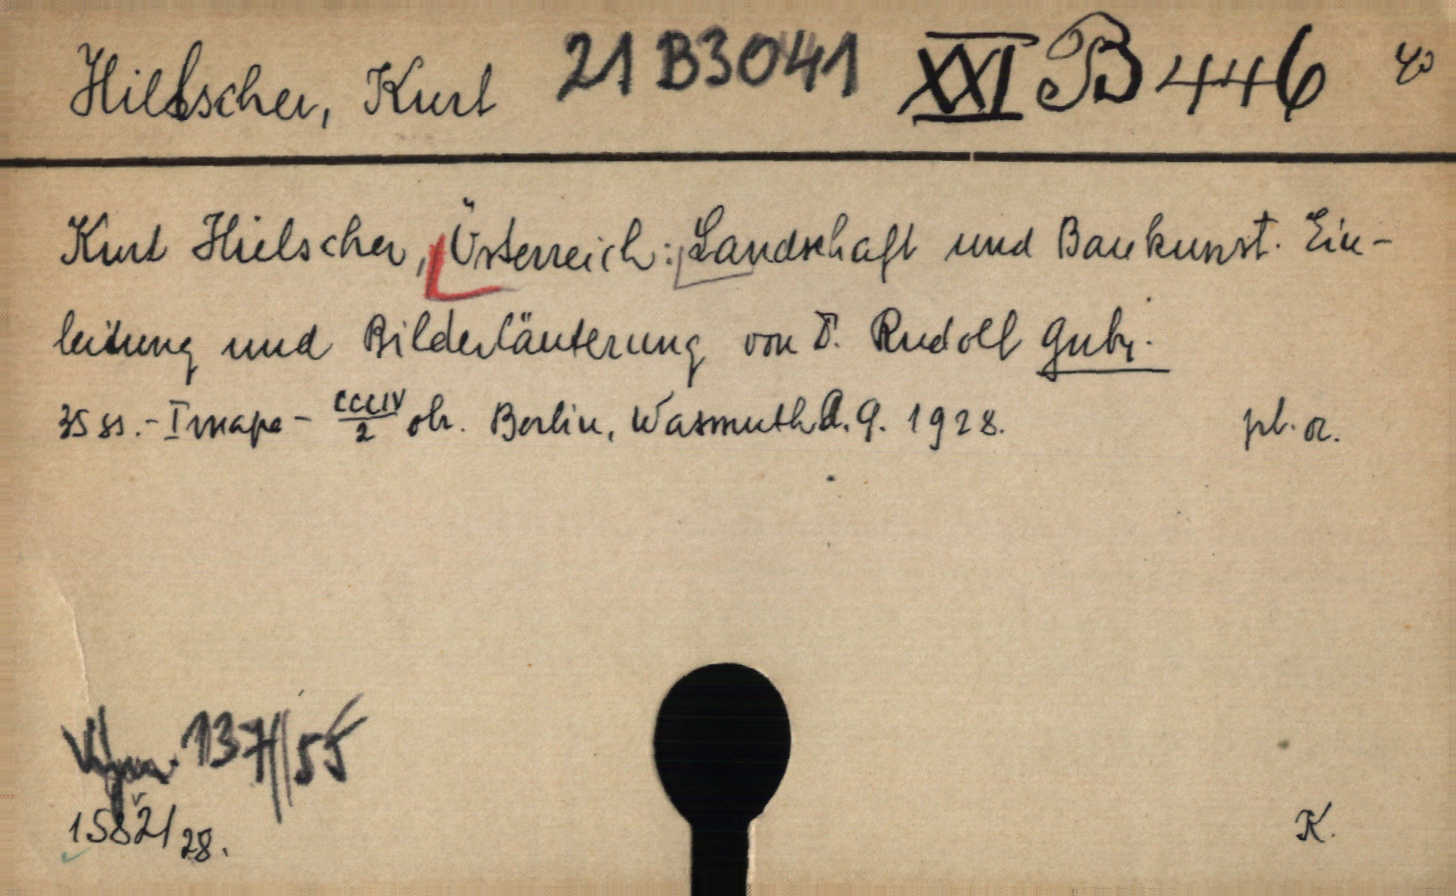 Hielscher, Kurt 21 B3041 XXI B 446 4o
Kurt Hielscher, Österreich: Landschaft und Baukunst. Ein-
leitung und Bilderläuterung von D. Rudolf Guby.
35 ss. - I mapa - CCCIV/2 obr. Berlin, Wasmuth A. G. 1928. pl. or.
137/55
1582/28. K.